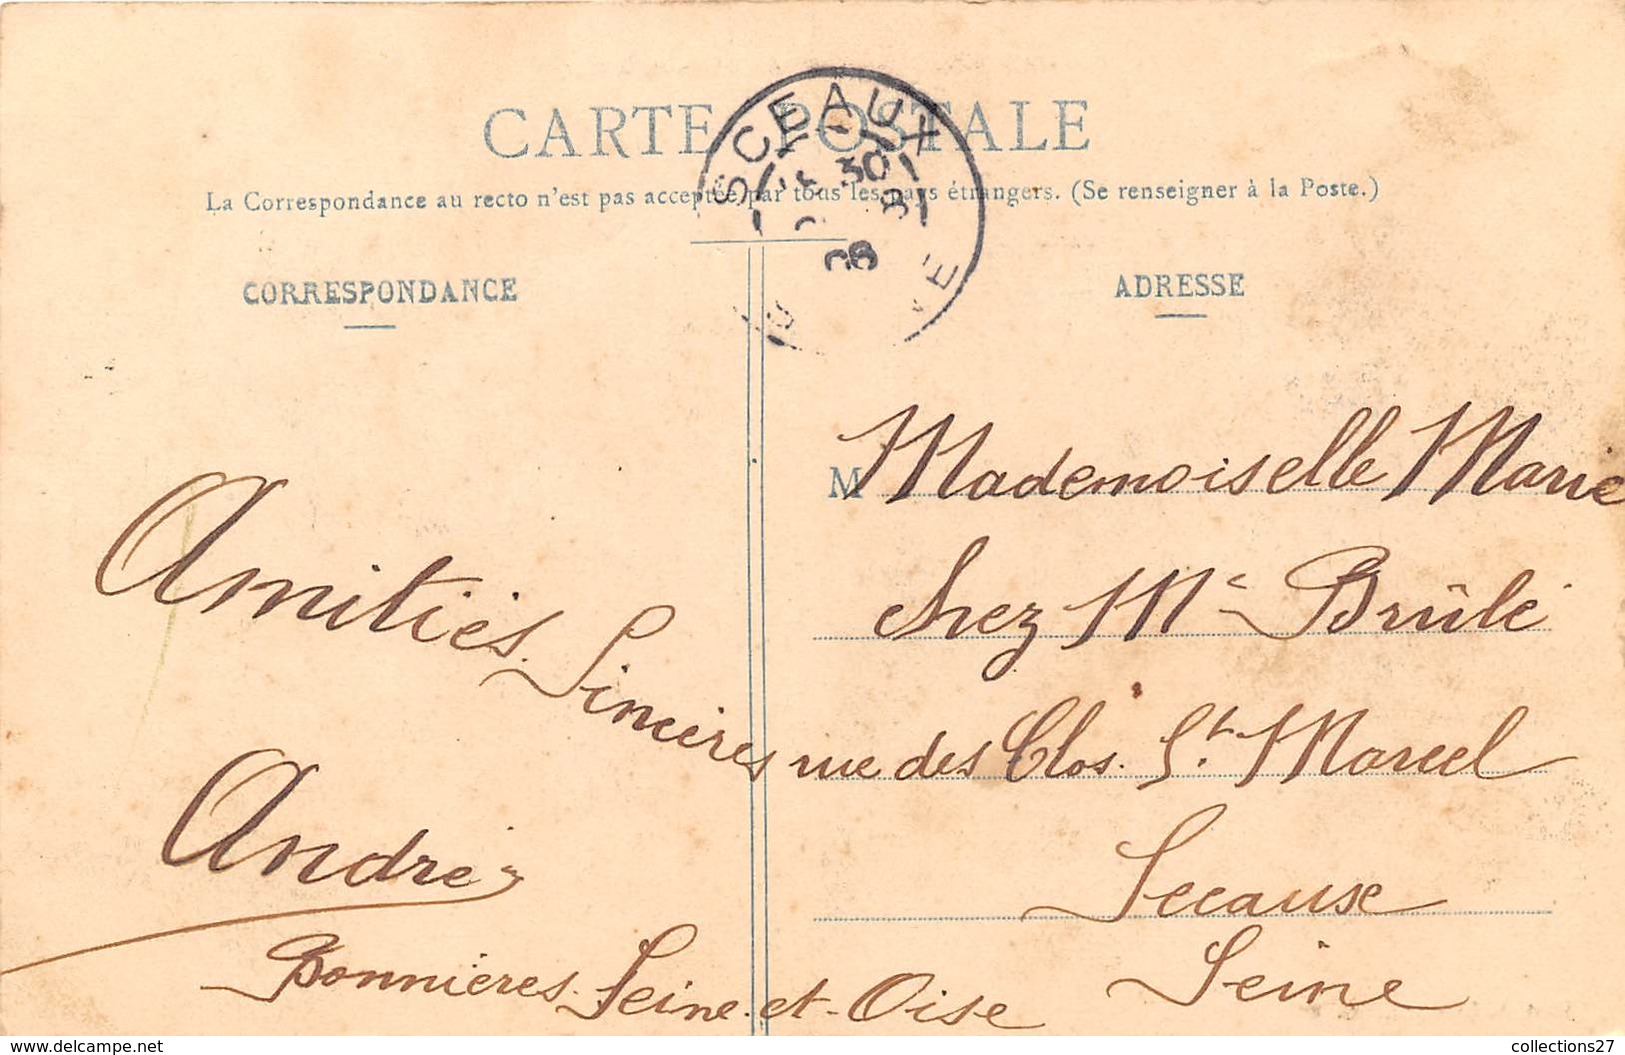 CARTE POSTALE
La Correspondance au recto n'est pas acceptée par tous les pays étrangers. (Se renseigner à la Poste.)
SCEAUX
30
8
08
CORRESPONDANCE
Amitiés Sincères
André
Bonnières. Seine-et-Oise
ADRESSE
M Mademoiselle Marie
Chez Me Brûlé
rue des Clos. St. Marcel
Sceause
Seine
www.delcampe.net
collections27